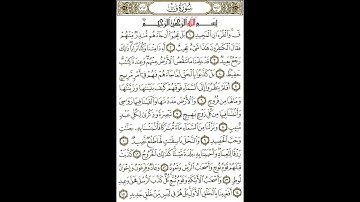 سُورَةُ ق
بِسْمِ ٱللَّهِ ٱلرَّحْمَٰنِ ٱلرَّحِيمِ
قٓ وَٱلْقُرْءَانِ ٱلْمَجِيدِ ١ بَلْ عَجِبُوٓا۟ أَن جَآءَهُم مُّنذِرٌ مِّنْهُمْ
فَقَالَ ٱلْكَٰفِرُونَ هَٰذَا شَىْءٌ عَجِيبٌ ٢ أَءِذَا مِتْنَا وَكُنَّا تُرَابًا ذَٰلِكَ
رَجْعٌۢ بَعِيدٌ ٣ قَدْ عَلِمْنَا مَا تَنقُصُ ٱلْأَرْضُ مِنْهُمْ وَعِندَنَا كِتَٰبٌ
حَفِيظٌۢ ٤ بَلْ كَذَّبُوا۟ بِٱلْحَقِّ لَمَّا جَآءَهُمْ فَهُمْ فِىٓ أَمْرٍ مَّرِيجٍ
٥ أَفَلَمْ يَنظُرُوٓا۟ إِلَى ٱلسَّمَآءِ فَوْقَهُمْ كَيْفَ بَنَيْنَٰهَا وَزَيَّنَّٰهَا
وَمَا لَهَا مِن فُرُوجٍ ٦ وَٱلْأَرْضَ مَدَدْنَٰهَا وَأَلْقَيْنَا فِيهَا رَوَٰسِىَ وَأَنۢبَتْنَا
فِيهَا مِن كُلِّ زَوْجٍۭ بَهِيجٍ ٧ تَبْصِرَةً وَذِكْرَىٰ لِكُلِّ عَبْدٍ
مُّنِيبٍ ٨ وَنَزَّلْنَا مِنَ ٱلسَّمَآءِ مَآءً مُّبَٰرَكًا فَأَنۢبَتْنَا بِهِۦ جَنَّٰتٍ
وَحَبَّ ٱلْحَصِيدِ ٩ وَٱلنَّخْلَ بَاسِقَٰتٍ لَّهَا طَلْعٌ نَّضِيدٌ ١٠
رِّزْقًا لِّلْعِبَادِ وَأَحْيَيْنَا بِهِۦ بَلْدَةً مَّيْتًا كَذَٰلِكَ ٱلْخُرُوجُ ١١ كَذَّبَتْ
قَبْلَهُمْ قَوْمُ نُوحٍ وَأَصْحَٰبُ ٱلرَّسِّ وَثَمُودُ ١٢ وَعَادٌ وَفِرْعَوْنُ وَإِخْوَٰنُ
لُوطٍ ١٣ وَأَصْحَٰبُ ٱلْأَيْكَةِ وَقَوْمُ تُبَّعٍ كُلٌّ كَذَّبَ ٱلرُّسُلَ فَحَقَّ وَعِيدِ
١٤ أَفَعَيِينَا بِٱلْخَلْقِ ٱلْأَوَّلِ بَلْ هُمْ فِى لَبْسٍ مِّنْ خَلْقٍ جَدِيدٍ ١٥